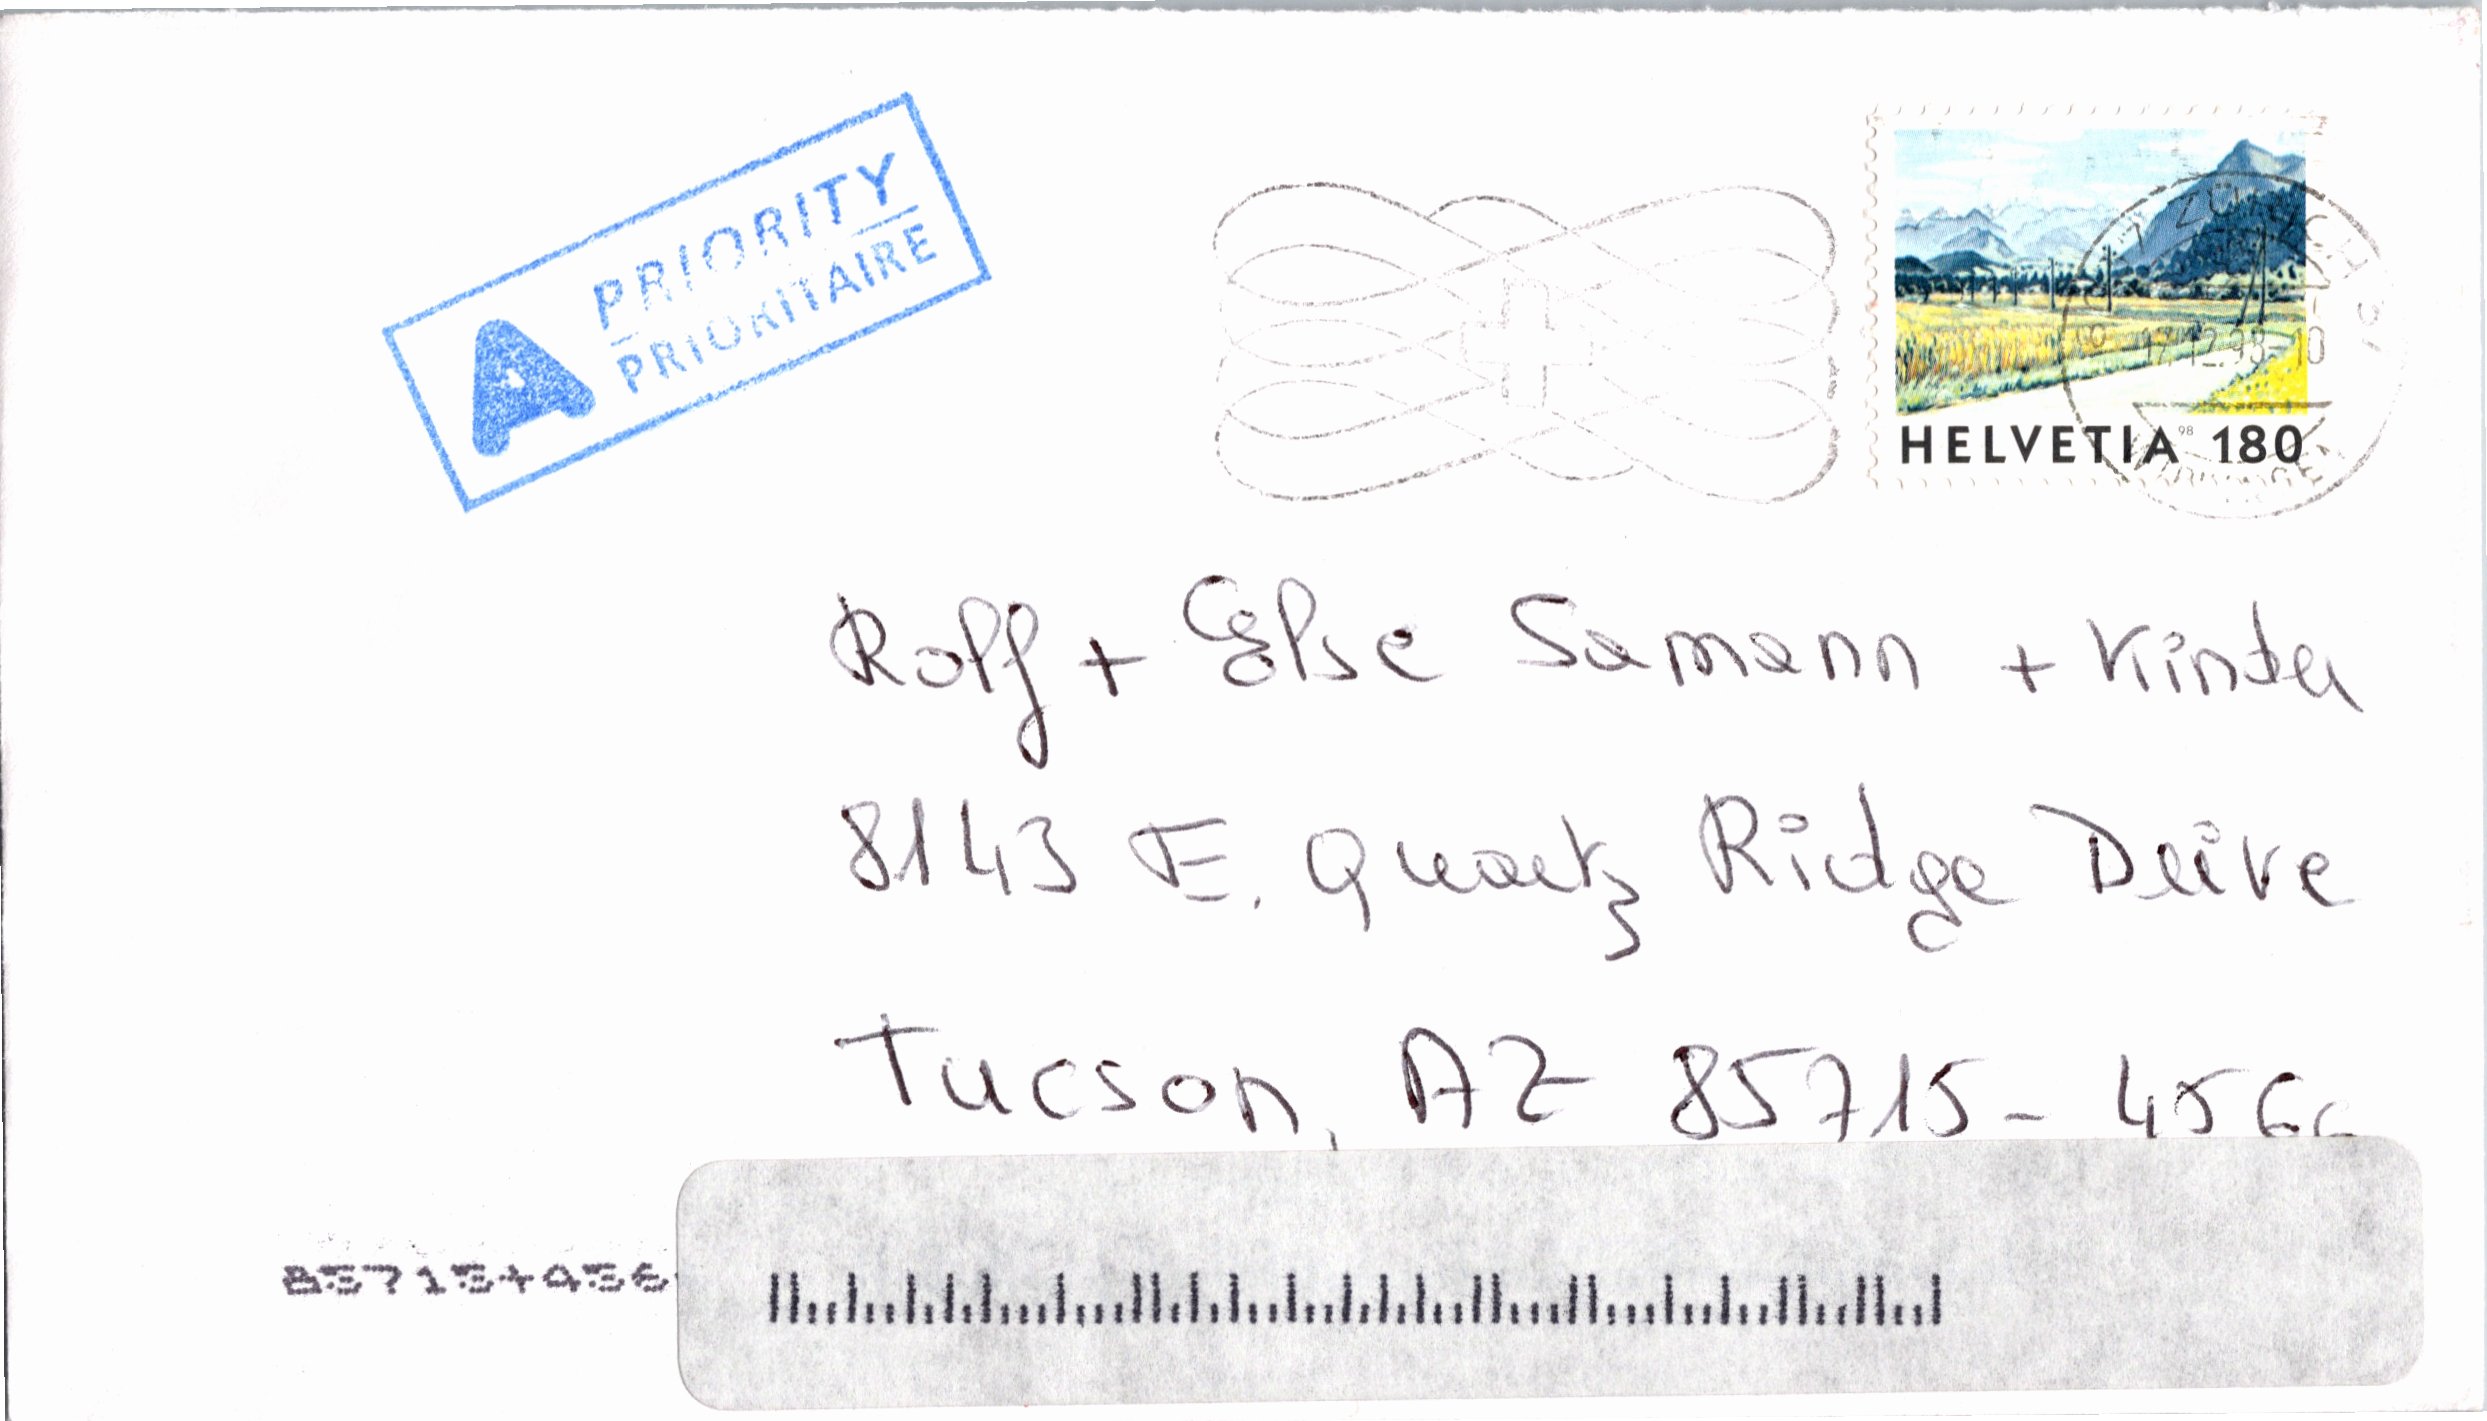 A PRIORITY
PRIORITAIRE
ZÜRICH
HELVETIA 98 180
Rolf + Else Samann + Kinder
8143 E. Quartz Ridge Drive
Tucson, AZ 85715-4566
85715+456